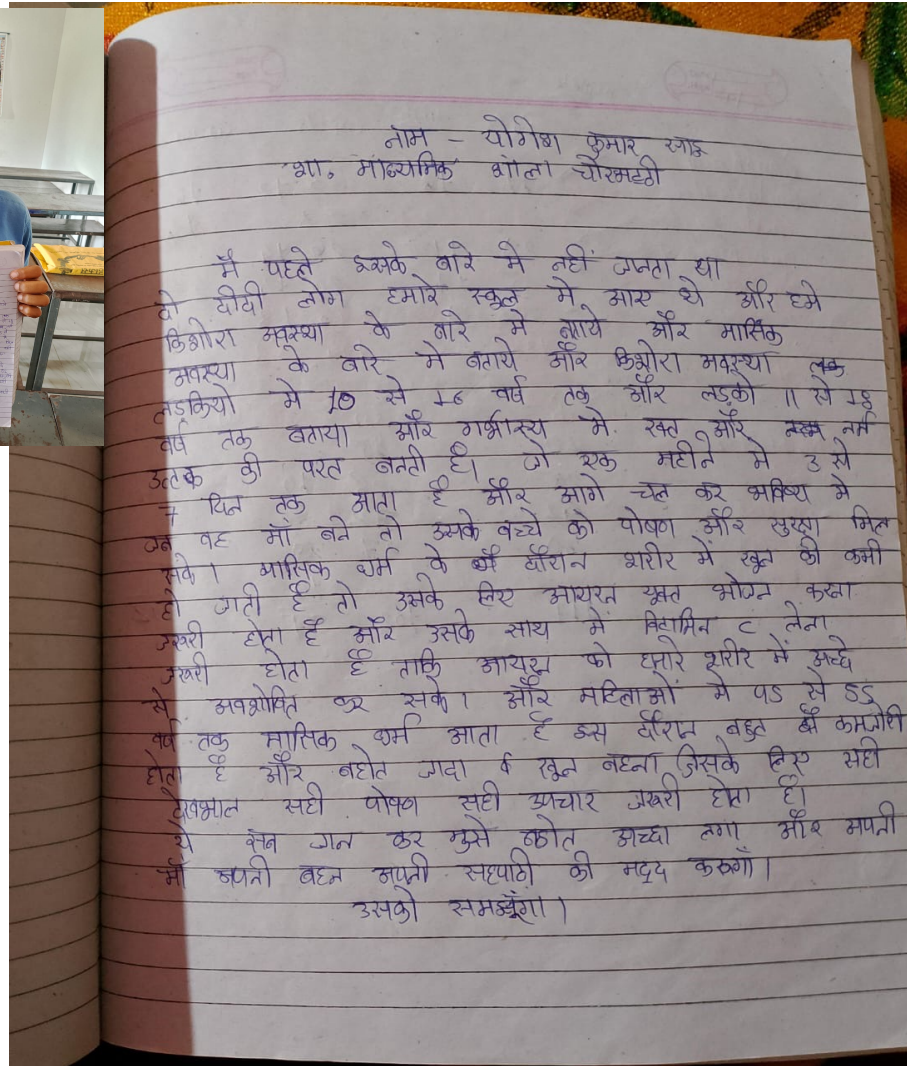 नाम - योगेश कुमार साहू
शा. माध्यमिक शाला चोरभट्ठी
मैं पहले इसके बारे मे नहीं जनता था
वो दीदी लोग हमारे स्कूल में आए थे और हमे
किशोरा अवस्था के बारे मे बताये और मासिक
अवस्था के बारे मे बताये और किशोरा अवस्था
लडकियो मे 10 से 16 वर्ष तक और लड़को 11 से 18
वर्ष तक बताया और गर्भास्य में रक्त और नर्म
उत्तक की परत बनती है। जो एक महीने मे 3 से
7 दिन तक आता है और आगे चल कर भविष्य मे
जब वह माँ बने तो उसके बच्चे को पोषण और सुरक्षा मिल
सके। मासिक धर्म के दौरान शरीर में खून की कमी
हो जाती है तो उसके लिए आयरन युक्त भोजन करना
जरुरी होता है और उसके साथ में विटामिन C लेना
जरुरी होता है ताकि आयरन को हमारे शरीर में अच्छे
से अवशोषित कर सके। और महिलाओं मे 45 से 55
वर्ष तक मासिक धर्म आता है इस दौरान बहुत ही कमजोरी
होता है और बहोत जादा खून बहना जिसके लिए सही
देखभाल सही पोषण सही उपचार जरुरी होता है।
ये सब जान कर मुझे बहोत अच्छा लगा और अपनी
माँ अपनी बहन अपनी सहपाठी की मदद करुगाँ।
उसको समझूँगा।